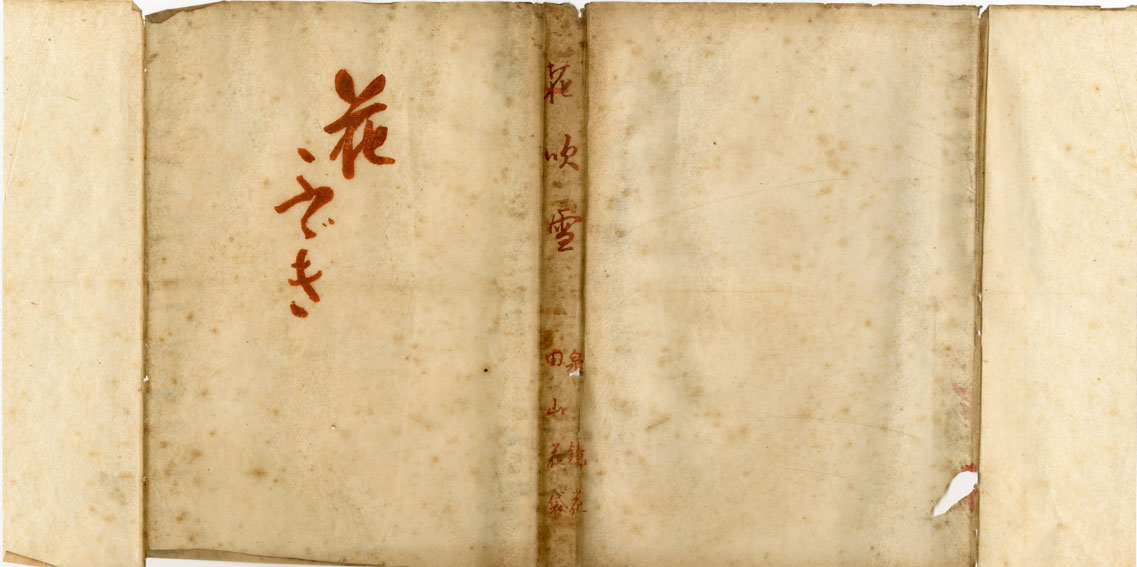 花ふゞき
花吹雪
泉鏡花
田山花袋